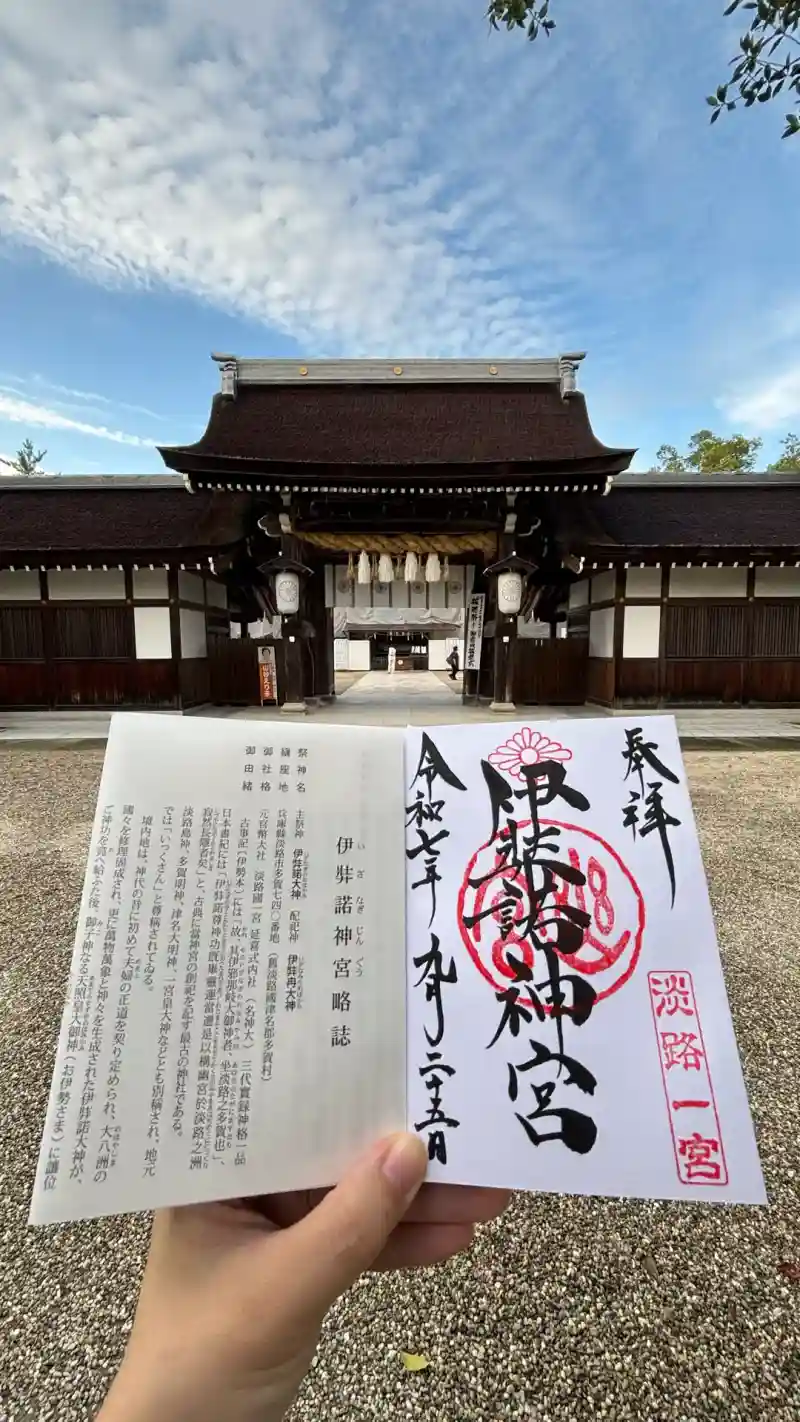 奉祥
伊弉諾神宮
令和七年 九月二十五日
淡路一宮
伊弉諾神宮略誌
いざなぎじんぐう
祭神名 主祭神 伊弉諾大神 配祀神 伊弉冉大神
鎮座地 兵庫縣淡路市多賀七四〇番地(舊淡路國津名郡多賀村)
御社格 元官幣大社 淡路國一宮 延喜式内社(名神大) 三代實録神格一品
御由緒 古事記(伊勢本)には「故、其伊邪那岐大御神者、坐淡路之多賀也」、
日本書紀には「伊弉諾尊神功既畢靈運當遷是以構幽宮於淡路之洲
寂然長隱者矣」と、古典に當神宮の創祀を記す最古の神社である。
淡路島神、多賀明神、津名大明神、一宮皇大神などとも別稱され、地元
では「いっくさん」と尊稱されてゐる。
境内地は、神代の昔に初めて夫婦の正道を契り定められ、大八洲の
國々を修理固成され、更に萬物萬象と神々を生成された伊弉諾大神が、
ご神功を竟へ給ふた後、御子神なる天照皇大御神(お伊勢さま)に讓位